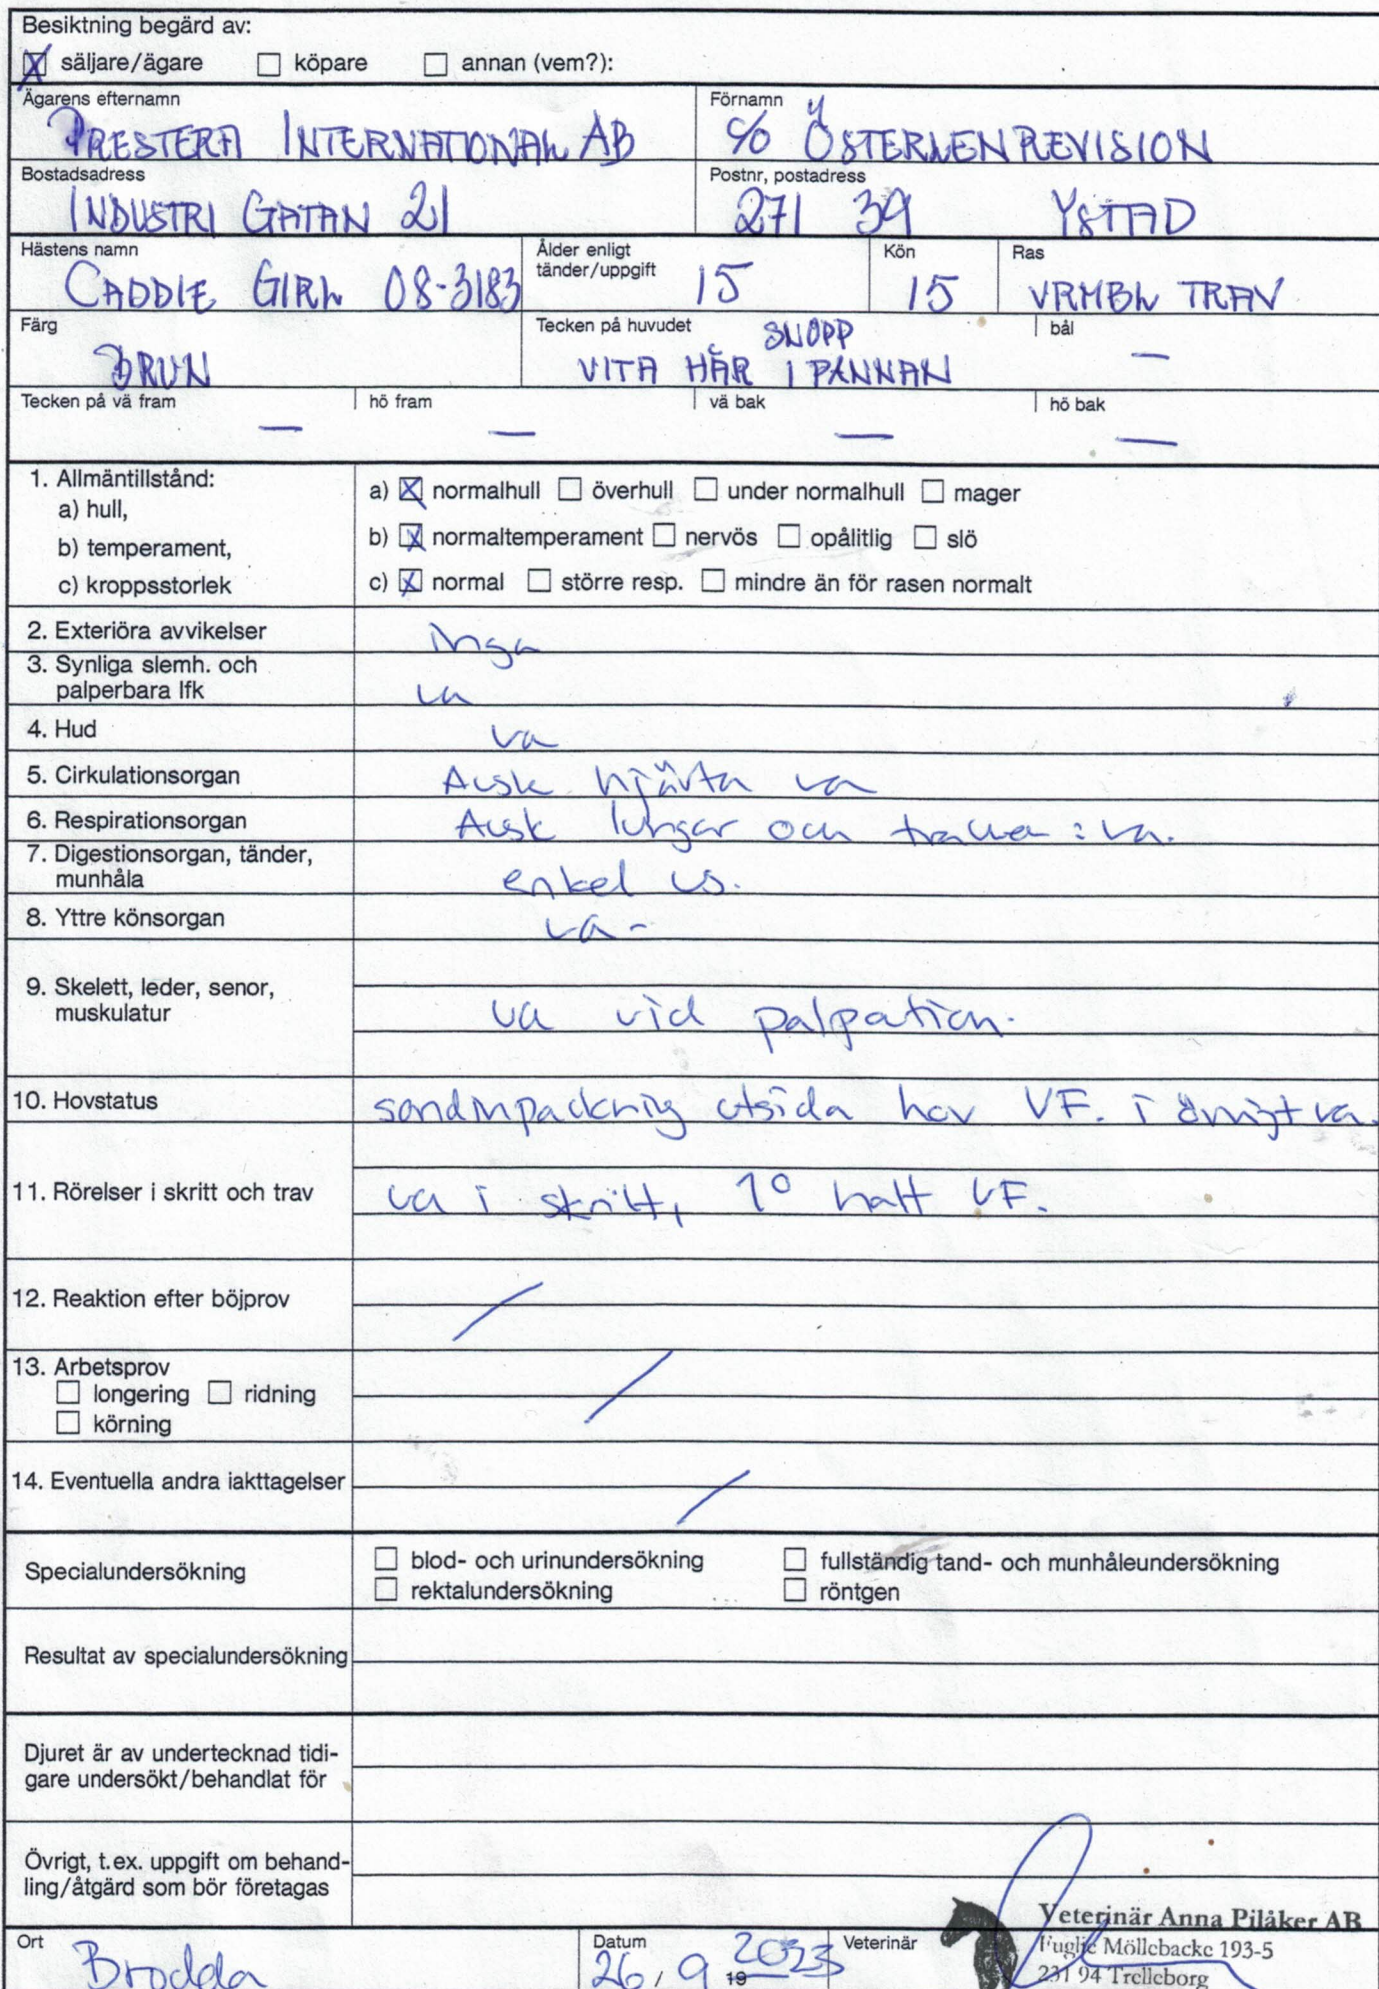 Besiktning begärd av:
säljare/ägare köpare annan (vem?):
Ägarens efternamn Förnamn
PRESTERA INTERNATIONAL AB c/o ÖSTERLENREVISION
Bostadsadress Postnr, postadress
INDUSTRI GATAN 21 271 39 YSTAD
Hästens namn Ålder enligt tänder/uppgift Kön Ras
CADDIE GIRL 08-3183 15 15 VRMBL TRAV
Färg Tecken på huvudet bål
BRUN SNOPP —
VITA HÅR I PANNAN
Tecken på vä fram hö fram vä bak hö bak
— — — —
1. Allmäntillstånd:
a) hull, a) normalhull överhull under normalhull mager
b) temperament, b) normaltemperament nervös opålitlig slö
c) kroppsstorlek c) normal större resp. mindre än för rasen normalt
2. Exteriöra avvikelser inga
3. Synliga slemh. och
palperbara lfk ua
4. Hud ua
5. Cirkulationsorgan Ausk hjärta ua
6. Respirationsorgan Ausk lungor och trachea : ua.
7. Digestionsorgan, tänder,
munhåla enkel us.
8. Yttre könsorgan ua-
9. Skelett, leder, senor,
muskulatur ua vid palpation.
10. Hovstatus sandinpackning utsida hov VF. i övrigt ua.
11. Rörelser i skritt och trav ua i skritt, 1° halt VF.
12. Reaktion efter böjprov
13. Arbetsprov
longering ridning
körning
14. Eventuella andra iakttagelser
Specialundersökning blod- och urinundersökning fullständig tand- och munhåleundersökning
rektalundersökning röntgen
Resultat av specialundersökning
Djuret är av undertecknad tidi-
gare undersökt/behandlat för
Övrigt, t.ex. uppgift om behand-
ling/åtgärd som bör företagas
Veterinär Anna Pilåker AB
Ort Datum Veterinär Fuglie Möllebacke 193-5
Brodda 26/9 19 2023 231 94 Trelleborg